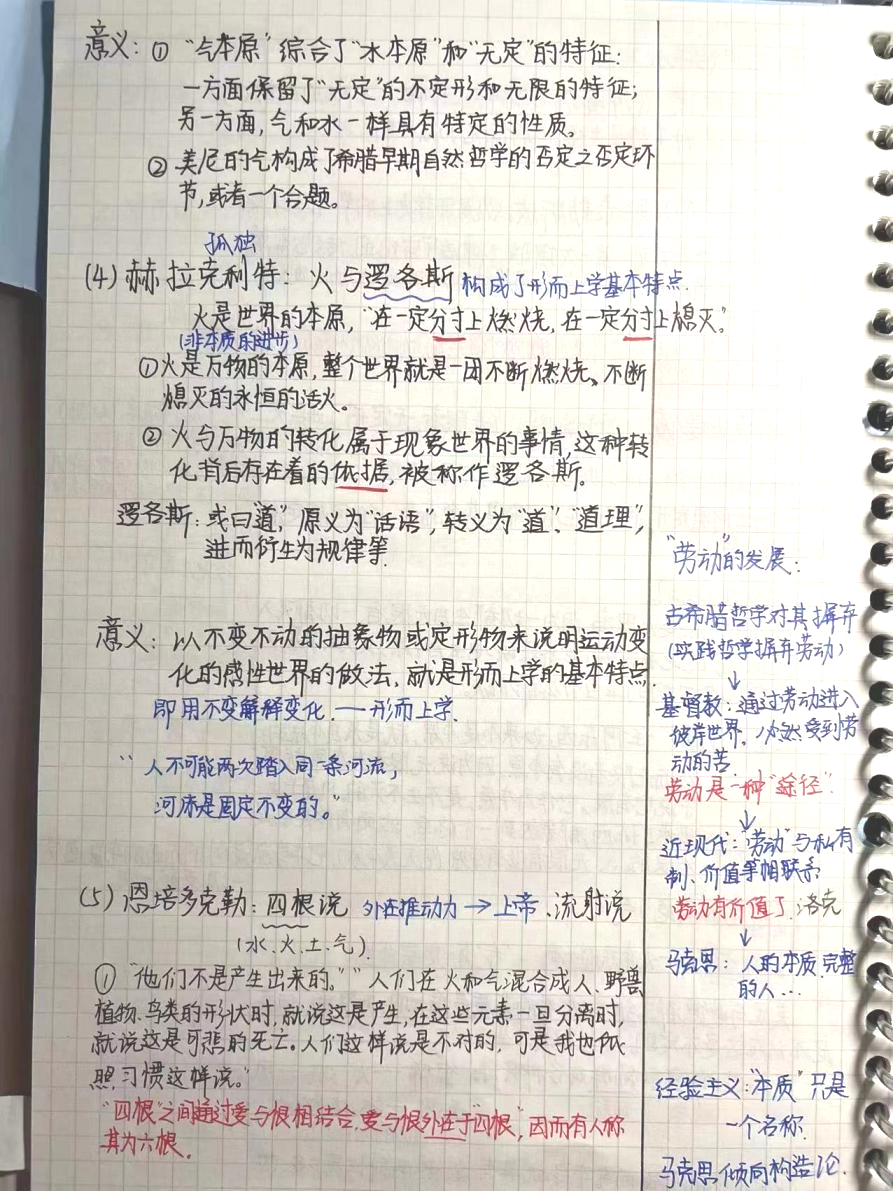 意义：① “气本原”综合了“水本原”和“无定”的特征：
一方面保留了“无定”的不定形和无限的特征；
另一方面，气和水一样具有特定的性质。
② 美尼的气构成了希腊早期自然哲学的否定之否定环
节，或者一个合题。
孤独
(4) 赫拉克利特：火与逻各斯 构成了形而上学基本特点.
火是世界的本原，“在一定分寸上燃烧，在一定分寸上熄灭”。
(非本质的进步)
①火是万物的本原，整个世界就是一团不断燃烧、不断
熄灭的永恒的活火。
② 火与万物的转化属于现象世界的事情，这种转
化背后存在着的依据，被称作逻各斯。
逻各斯：或曰“道”，原义为“话语”，转义为“道”、“道理”，
进而衍生为规律等.
意义：以不变不动的抽象物或定形物来说明运动变
化的感性世界的做法，就是形而上学的基本特点.
即用不变解释变化.——形而上学.
“人不可能两次踏入同一条河流，
河床是固定不变的。”
(5) 恩培多克勒：四根说 外在推动力→上帝、流射说
(水、火、土、气)
① “他们不是产生出来的。”“人们在火和气混合成人、野兽
植物、鸟类的形状时，就说这是产生，在这些元素一旦分离时，
就说这是可悲的死亡。人们这样说是不对的，可是我也依
照习惯这样说。”
“四根”之间通过爱与恨相结合，爱与恨外在于“四根”，因而有人称
其为六根.
“劳动”的发展：
古希腊哲学对其摒弃
(实践哲学摒弃劳动)
↓
基督教：通过劳动进入
彼岸世界，必然受到劳
动的苦
劳动是一种“途径”.
↓
近现代：“劳动”与私有
制、价值等相联系
劳动有价值了.洛克
↓
马克思：人的本质.完整
的人...
经验主义：“本质”只是
一个名称.
马克思倾向构造论.